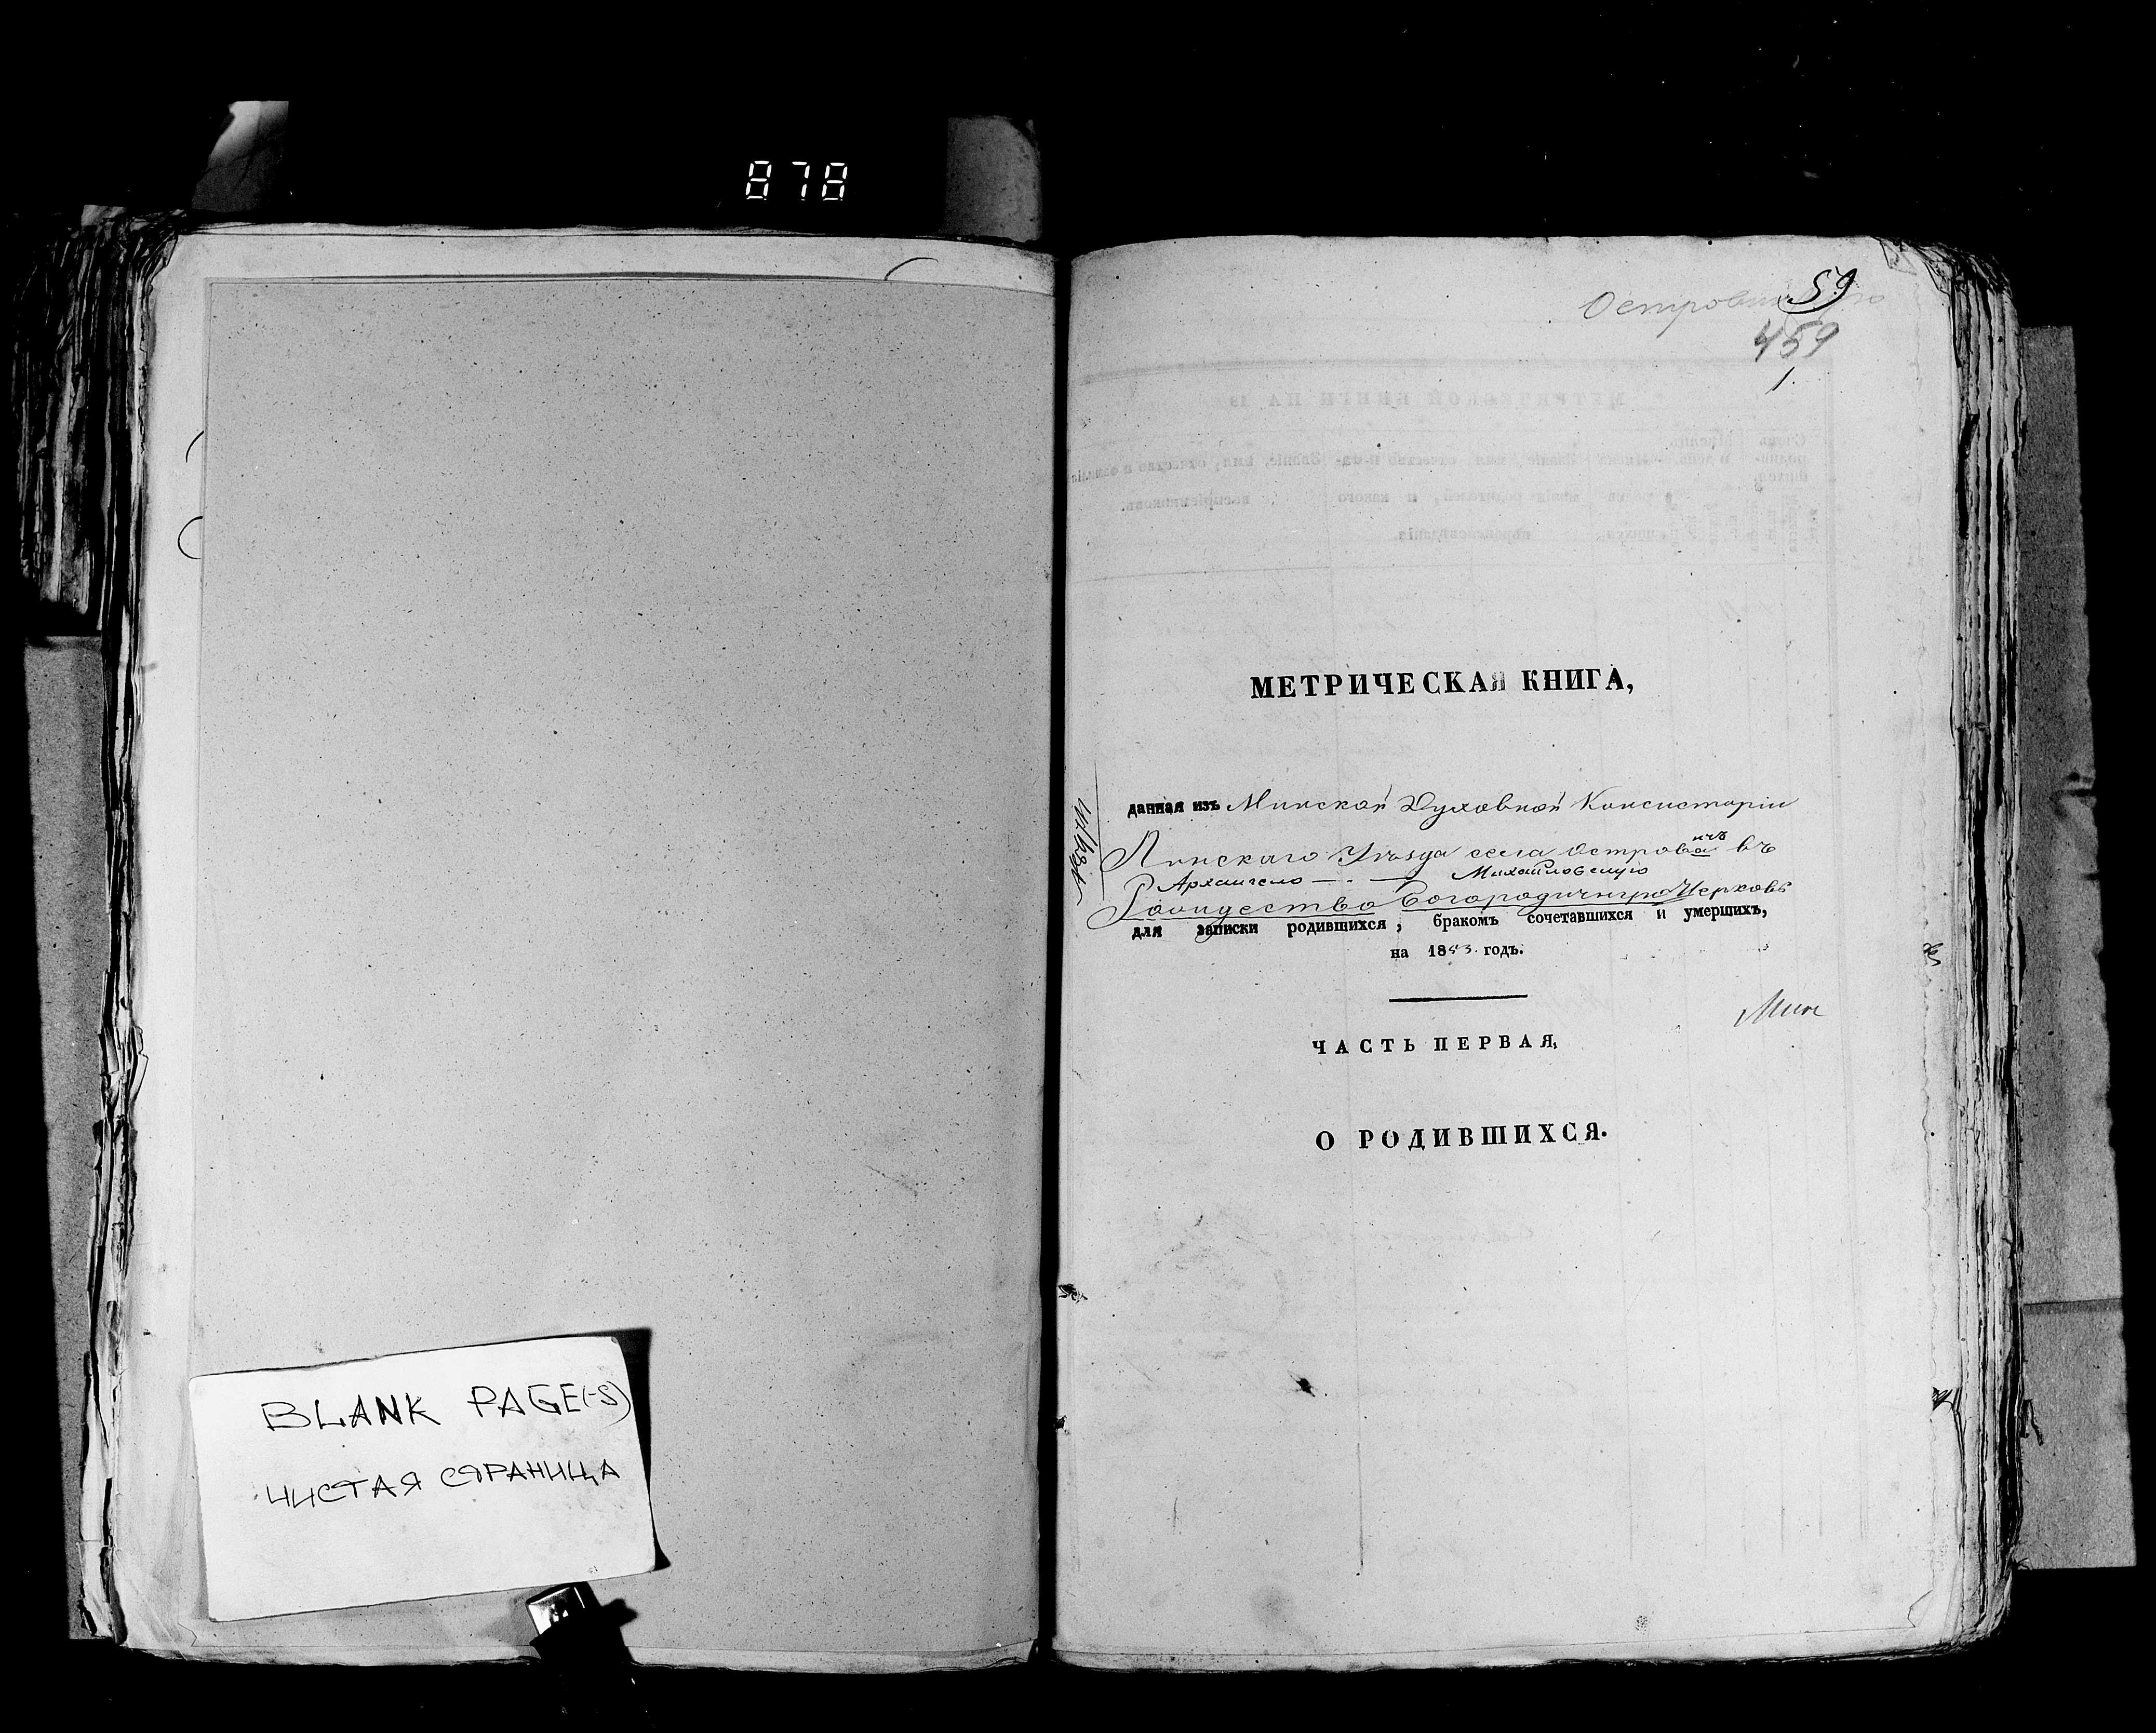 878
BLANK PAGE(-S)
ЧИСТАЯ СТРАНИЦА
59
459
1.
МЕТРИЧЕСКАЯ КНИГА,
данная изъ Минской Духовной Консисторіи
Пинскаго Уѣзда села Островичъ въ
Архангело - Михайловскую
Рождество Богородичную Церковь
для записки родившихся, бракомъ сочетавшихся и умершихъ,
на 1853 годъ.
ЧАСТЬ ПЕРВАЯ,
О РОДИВШИХСЯ.